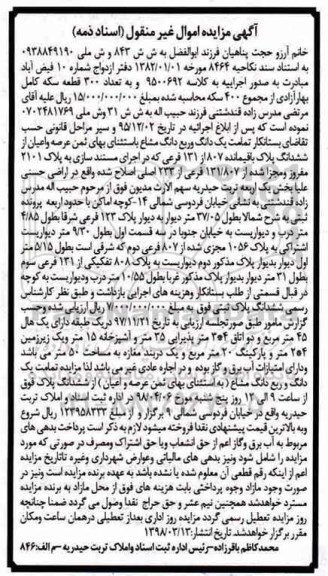 آگهی مزایده اموال غیر منقول (اسناد ذمه)
خانم آرزو حجت پناهیان فرزند ابوالفضل به ش ش ۸۴۳ و ش ملی ۰۹۳۸۸۴۹۱۹۰
به استناد سند نکاحیه ۸۴۶۴ مورخه ۱۳۸۲/۰۱/۰۱ دفتر ازدواج شماره ۱۰ فیض آباد
مبادرت به صدور اجراییه به کلاسه ۹۵۰۰۶۹۲ و به تعداد ۳۰۰ قطعه سکه کامل
بهار آزادی از مجموع ۴۰۰ سکه محاسبه شده بمبلغ ۱۵/۰۰۰/۰۰۰/۰۰۰ ریال علیه آقای
مرتضی مدرس زاده قندشتنی فرزند حبیب اله به ش ش ۳۱ وش ملی ۰۷۰۲۴۸۱۷۶۹
نموده است که پس از ابلاغ اجرائیه در تاریخ ۹۵/۱۲/۰۲ و سیر مراحل قانونی حسب
تقاضای بستانکار تمامت یک دانگ وربع دانگ مشاع باستثنای بهای ثمن عرصه واعیان از
ششدانگ پلاک باقیمانده ۸۰۷ از ۱۳۱ فرعی که در اجرای مستند سازی به پلاک ۲۱۰۱
مفروز ومجزا شده از ۱۳۱/۸۰۷ فرعی از ۲۳۳ اصلی اصلاح شده واقع در اراضی حسنی
علیا بخش یک اربعه تربت حیدریه سهم الارث مدیون فوق از مرحوم حبیب اله مدرس
زاده قندشتنی به نشانی خیابان فردوسی شمالی ۱۴-کوچه اماکن با حدود اربعه پرونده
ثبتی به شرح شمالا بطول ۳۷/۰۵ متر دیوار به دیوار پلاک ۱۲۳ فرعی شرقا بطول ۴/۸۵
متر درب و دیواریست به خیابان جنوبا در سه قسمت اول بطول ۹/۳۰ متر دیواریست
اشتراکی به پلاک ۱۰۵۶ مجزی شده از ۸۰۷ فرعی دوم که شرقی است بطول ۵/۱۵ متر
اول دیوار بدیوار پلاک مذکور دوم دیواریست به پلاک ۸۰۸ تفکیکی از ۱۳۱ فرعی سوم
بطول ۲۱ متر دیوار بدیوار پلاک مذکور غربا بطول ۱۰/۵۵ متر درب ودیواریست به کوچه
در قبال قسمتی از طلب بستانکار وهزینه های اجرایی بازداشت و طبق نظر کارشناس
رسمی ششدانگ پلاک ثبتی فوق به مبلغ ۷/۰۰۰/۰۰۰/۰۰۰ ریال ارزیابی شده وحسب
گزارش مامور طبق صورتجلسه ارزیابی به تاریخ ۹۷/۱۱/۲۱ در یک طبقه دارای یک هال
۴۵ متر مربع و دو اتاق ۴*۲ متر پذیرایی ۲۵ متر و آشپزخانه ۱۵ متر ویک زیرزمین
۴*۲ متر و پارکینگ ۲۰ متر مربع و یک دربند مغازه به مساحت ۵۰ متر می باشد
ودارای امتیازات آب برق و گاز بوده و در اجاره عادی غیر می باشد لذا مزایده تمامت یک
دانگ و ربع دانگ مشاع (به استثنای بهای ثمن عرصه و اعیان) از ششدانگ پلاک فوق
از ساعت ۹ الی ۱۲ روز پنج شنبه مورخ ۹۸/۰۴/۰۶ در اداره ثبت اسناد و املاک تربت
حیدریه واقع در خیابان فردوسی شمال ۹ برگزار و از مبلغ ۱۲۳۹۵۸۳۳۳ ریال شروع
وبه بالاترین قیمت پیشنهادی نقدا فروخته میشود لازم به ذکر است پرداخت بدهی های
مربوط به آب برق وگاز اعم از حق انشعاب ویا حق اشتراک ومصرف در صورتی که مورد
مزایده را شامل شود ونیز بدهی های مالیاتی وعوارض شهرداری وغیره تاتاریخ مزایده
اعم از اینکه رقم قطعی آن معلوم شده یا نشده باشد به عهده برنده مزایده است ونیز در
صورت وجود مازاد وجوه پرداختی بابت هزینه های فوق از محل مازاد به برنده مزایده
مسترد خواهد شد همچنین نیم عشر و حق حراج نقدا وصول می گردد ضمنا چنانچه
روز مزایده تعطیل رسمی گردد مزایده روز اداری بعداز تعطیلی درهمان ساعت ومکان
مقرر برگزار خواهد شد. تاریخ انتشار: ۱۳۹۸/۰۳/۱۲
محمد کاظم باقرزاده-رئیس اداره ثبت اسناد و املاک تربت حیدریه -م الف: ۸۴۶